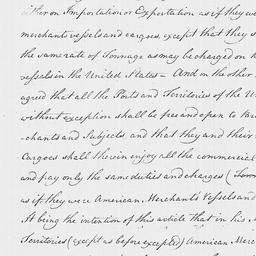 either on Importation or Exportation as if they we
merchants vessels and cargoes except that they s
the same rate of Tonnage as may be charged on
vessels in the United States – And on the other
agreed that all the Ports and Territories of the U
without exception shall be free and open to
-chants and Subjects and that they and their
Cargoes shall therein enjoy all the commercial
and pay only the same duties and charges (
as if they were American Merchants Vessels and
It being the intention of this article that in his
Territories (except as before excepted) American Merc